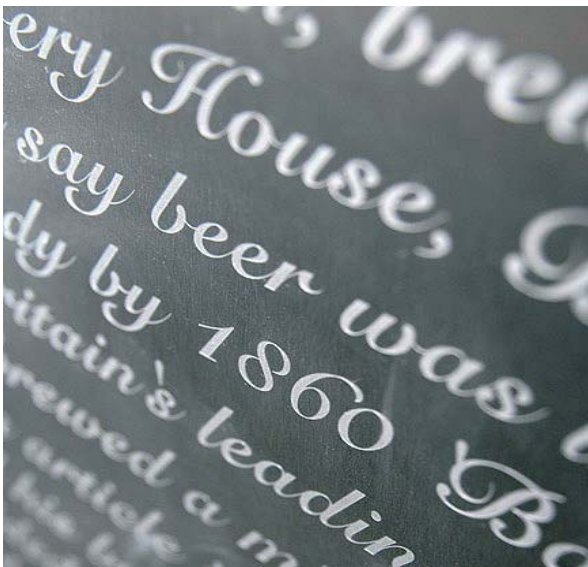 , brew
ery House, B
say beer was b
dy by 1860 Bo
ritain's leadin
rewed a m
article
his b